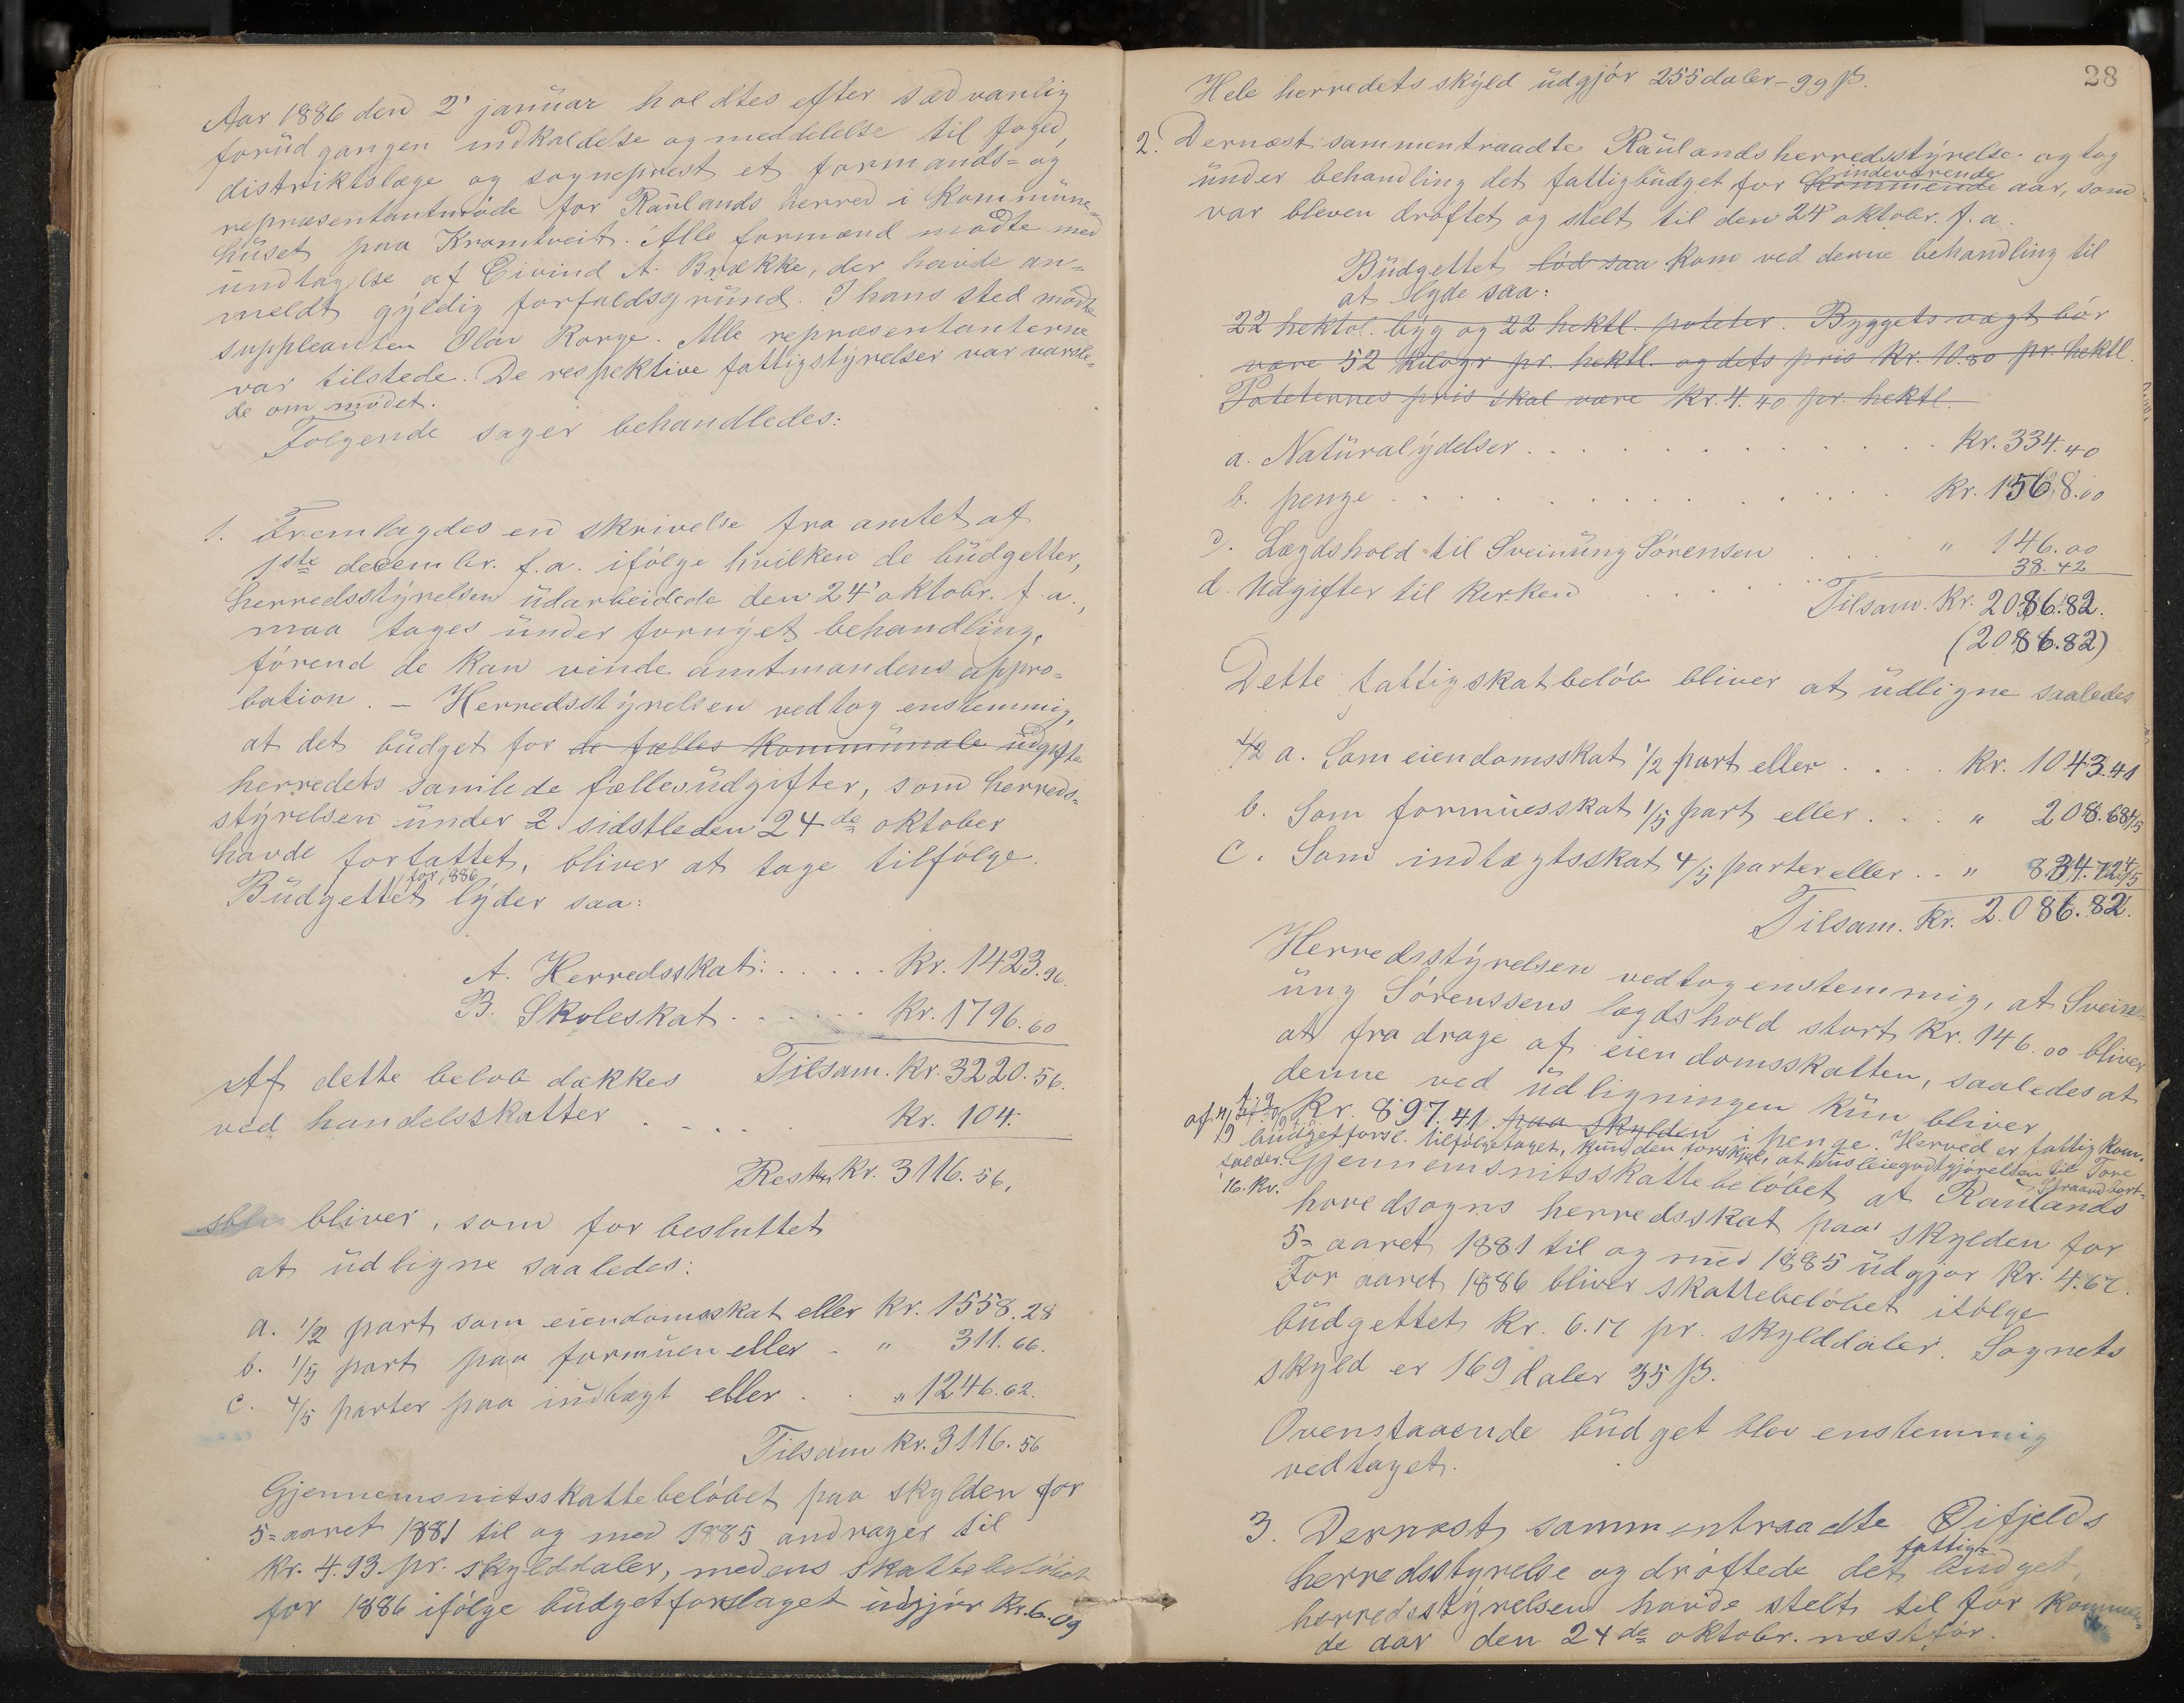 Aar 1886 den 2' januar holdtes efter sædvanlig
forudgangen indkaldelse og meddelelse til foged,
distriktslæge og sogneprest et formands= og
repræsentantmøde for Raulands herred i Kommune=
huset paa Kromtveit. Alle formænd mødte med
undtagelse af Eivind A. Brække, der havde an=
meldt gyldig forfaldsgrund. I hans sted mødte
suppleanten Olav Korge. Alle repræsentanterne
var tilstede. De respektive fattigstyrelser var varsle=
de om mødet.
Følgende sager behandledes:
1. Fremlagdes en skrivelse fra amtet af
1ste decembr. f.a. ifølge hvilken de budgetter,
herredsstyrelsen udarbeidede den 24' oktobr. f.a.,
maa tages under fornyet behandling,
førend de kan vinde amtmandens appro=
bation. – Herredsstyrelsen vedtog enstemmig,
at det budget for de fælles kommunale udgifte
herredets samlede fællesudgifter, som herreds=
styrelsen under 2 sidstleden 24de oktober
havde forfattet, bliver at tage tilfølge.
for 1886
Budgettet lyder saa:
A. Herredsskat: . . . . . Kr. 1423.96.
B. Skoleskat . . . . . . Kr. 1796.60
Af dette beløb dækkes Tilsam. Kr. 3220.56.
ved handelsskatter . . . . . Kr. 104.
Rest Kr. 3116.56.
bliver, som før besluttet
at udligne saaledes:
a. 1/2 part som eiendomsskat eller Kr. 1558.28
b. 1/5 part paa formuen eller - " 311.66.
c. 4/5 parter paa indtægt eller . . " 1246.62.
Tilsam Kr. 3116.56
Gjennemsnitsskattebeløbet paa skylden for
5=aaret 1881 til og med 1885 andrager til
Kr. 4.93 pr. skylddaler, medens skattebeløbet
for 1886 ifølge budgetforslaget udgjør Kr. 6.09
28
Hele herredets skyld udgjør 255 daler – 99 ß.
2. Dernæst sammentraadte Raulands herredsstyrelse og tog
indeværende
under behandling det fattigbudget for kommende aar, som
var bleven drøftet og stelt til den 24' oktobr. f.a.
Budgettet lød saa kom ved denne behandling til
at lyde saa:
22 hektol. byg og 22 hektl. poteter. Byggets vægt bør
være 52 Kilogr pr. hektl. og dets pris Kr. 10.80 pr. hektl.
Poteternes pris skal være Kr. 4.40 pr. hektl.
a. Naturalydelser . . . . . . . . . . Kr. 334.40
b. penge . . . . . . . . . . . . Kr. 1568.00
c. Lægdshold til Sveinung Sørensen . . . " 146.00
d. Udgifter til kirken . . . . . 38.42
Tilsam. Kr. 2086.82.
(2086.82)
Dette fattigskatbeløb bliver at udligne saaledes
1/2 a. Som eiendomsskat 1/2 part eller . . . . Kr. 1043.41
b. Som formuesskat 1/5 part eller . . . " 208.68 1/5
c. Som indtægtsskat 4/5 parter eller . . " 834.72 4/5
Tilsam. Kr. 2.086.82.
Herredsstyrelsen vedtog enstemmig, at Svein=
ung Sørenssens lægdshold stort Kr. 146.00 bliver
at fradrage af eiendomsskatten, saaledes at
denne ved udligningen kun bliver
Kr. 897.41 paa skylden i penge. Herved er fattigkom.
budgetforsl. tilfølgetaget, kun den forskjel, at husleiegodtgjørelsen til Tore
Straand bort=
falder. Gjennemsnitsskattebeløbet af Raulands
16. Kr.
hovedsogns herredsskat paa skylden for
5=aaret 1881 til og med 1885 udgjør Kr. 4.67.
For aaret 1886 bliver skattebeløbet ifølge
budgettet Kr. 6.17 pr. skylddaler. Sognets
skyld er 169 daler 35 ß.
Ovenstaaende budget blev enstemmig
vedtaget.
3. Dernæst sammentraadte Øifjelds
fattig=
herredsstyrelse og drøftede det budget,
herredsstyrelsen havde stelt til for kommen
de aar den 24de oktobr. næstfør.